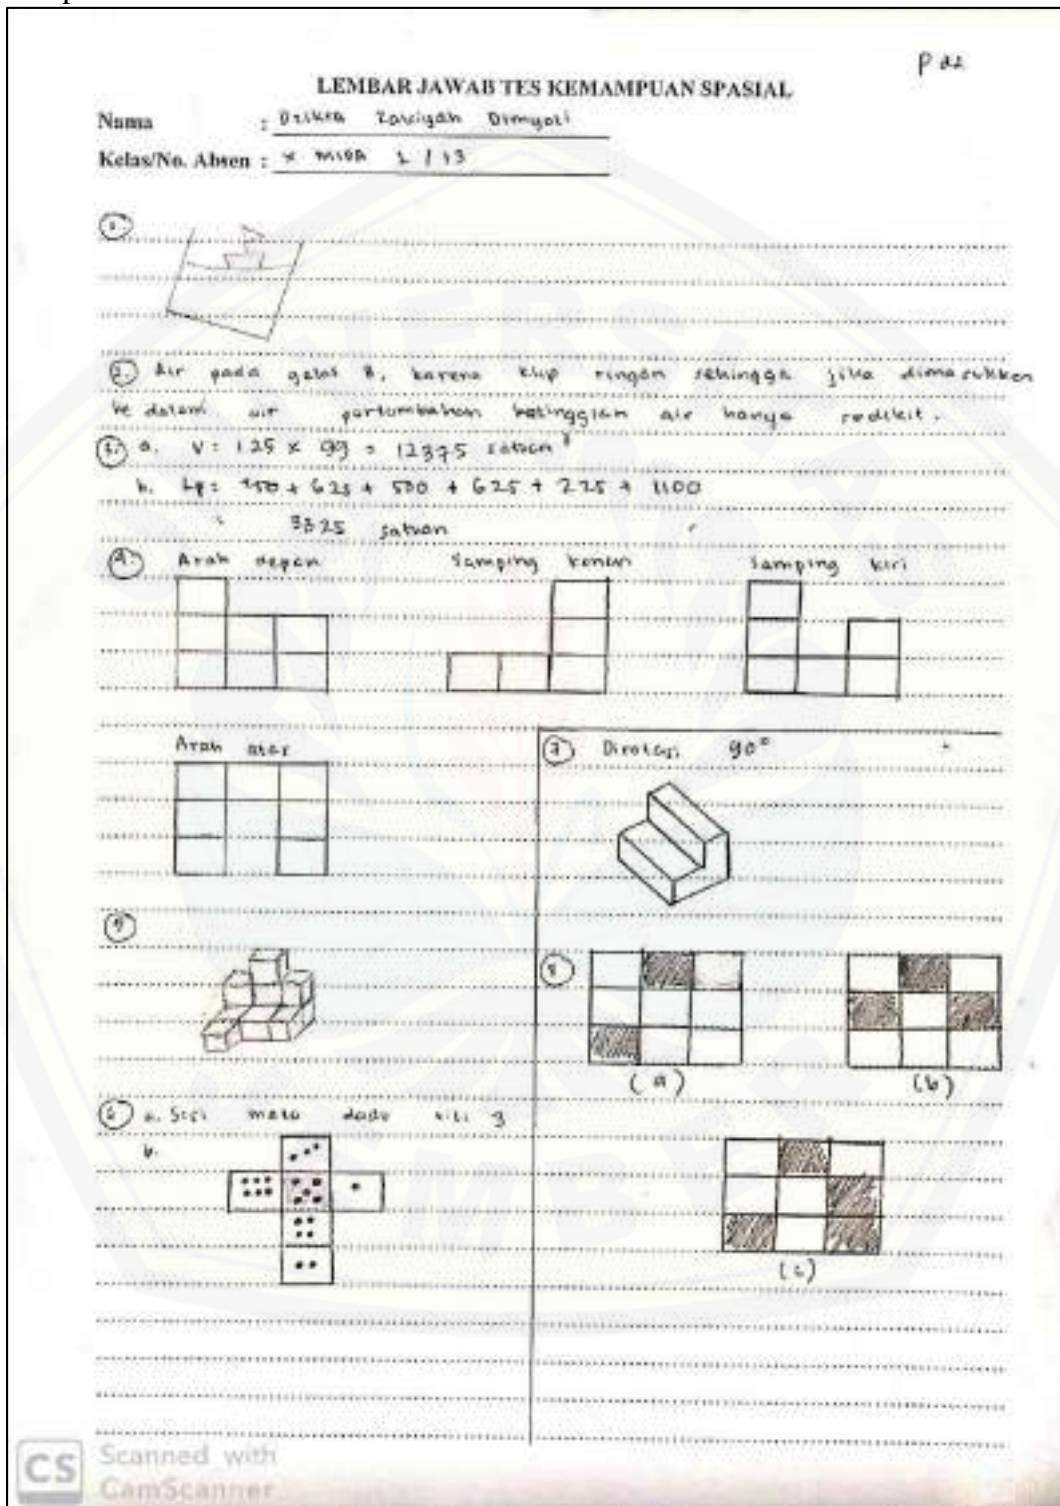 LEMBAR JAWAB TES KEMAMPUAN SPASIAL
Nama :
Kelas/No. Absen : X MIPA 2 / 13
1.
2. Air pada gelas B, karena klip ringan sehingga jika dimasukkan
ke dalam air pertambahan ketinggian air hanya sedikit.
3. a. V = 125 x 99 = 12375 satuan³
b. Lp = + 625 + 500 + 625 + 225 + 1100
= 3325 satuan
4. Arah depan Samping kanan Samping kiri
Arah atas
7 Dirotasi 90°
5
8
(a) (b)
6 a. Sisi mata dadu titi 3
b.
(c)
CS Scanned with
CamScanner